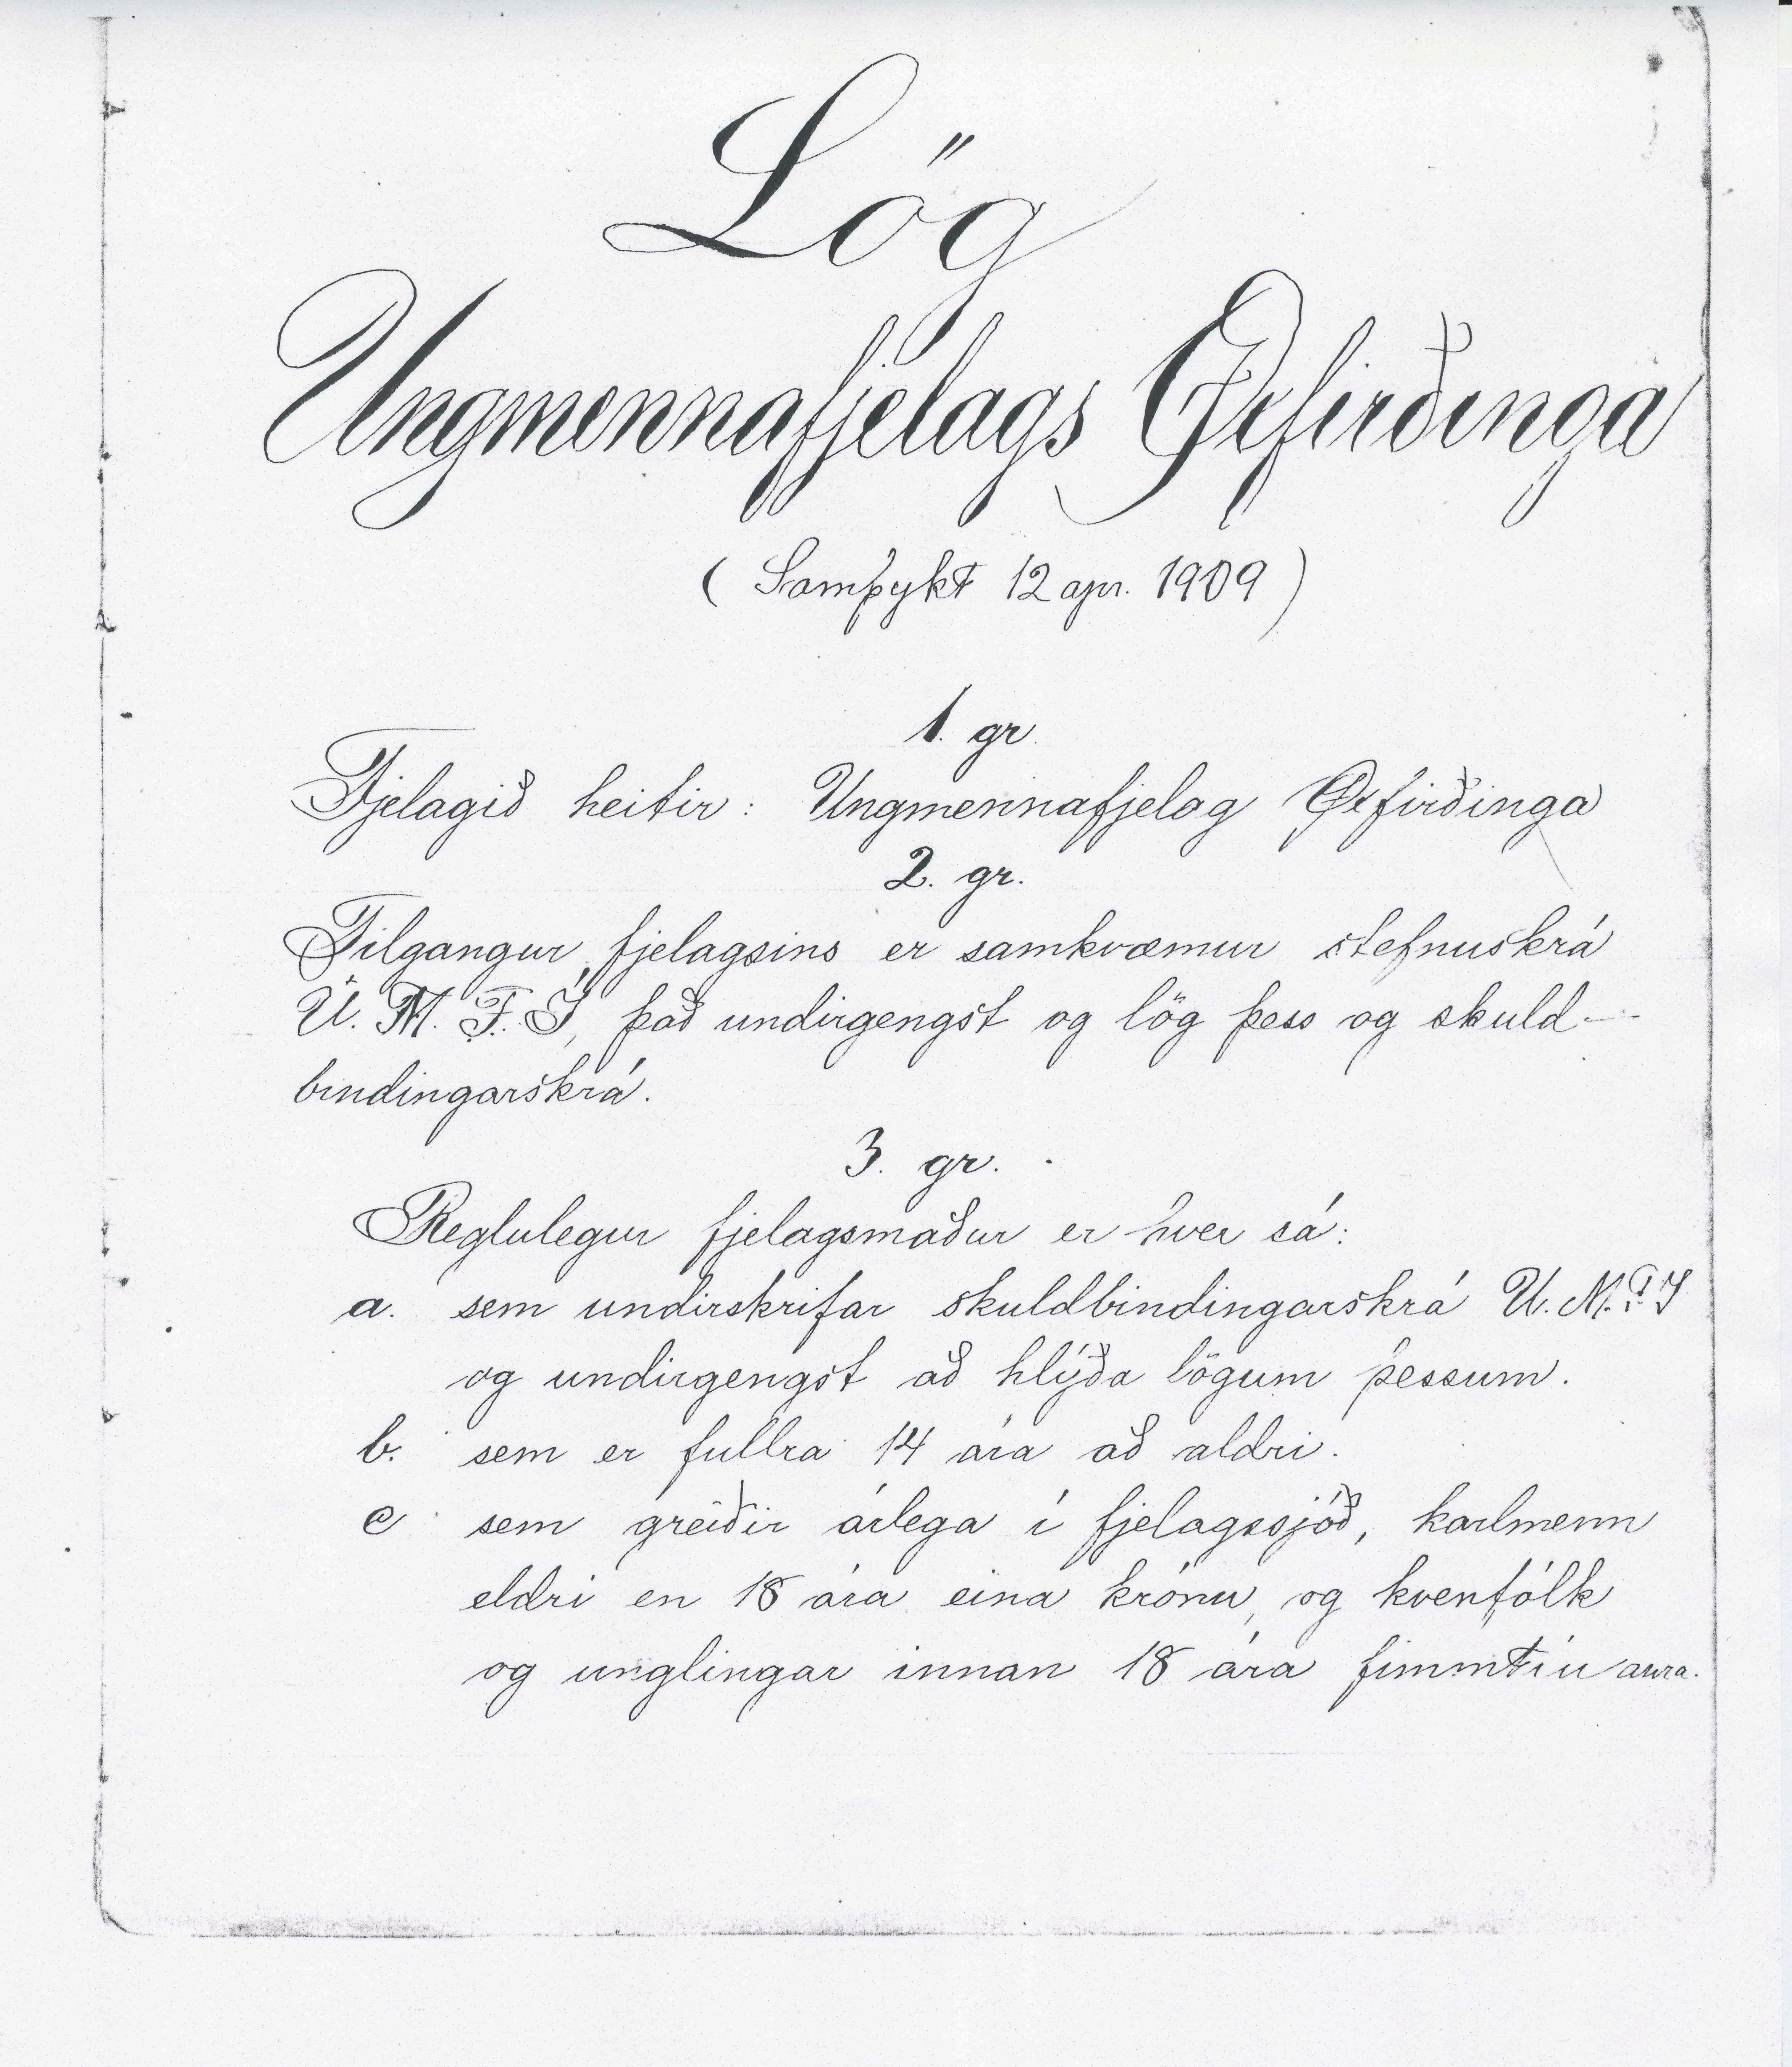 Lög
Ungmennafjelags Øxfirðinga
(Samþykt 12 apr. 1909)
1. gr.
Fjelagið heitir: Ungmennafjelag Øxfirðinga
2. gr.
Tilgangur fjelagsins er samkvæmur stefnuskrá
U. M. F. Í, það undirgengst og lög þess og skuld-
bindingarskrá.
3. gr.
Reglulegur fjelagsmaður er hver sá:
a. sem undirskrifar skuldbindingarskrá U. M. F. Í
og undirgengst að hlýða lögum þessum.
b. sem er fullra 14 ára að aldri.
c sem greiðir árlega í fjelagssjóð, karlmenn
eldri en 18 ára eina krónu, og kvenfólk
og unglingar innan 18 ára fimmtíu aura.